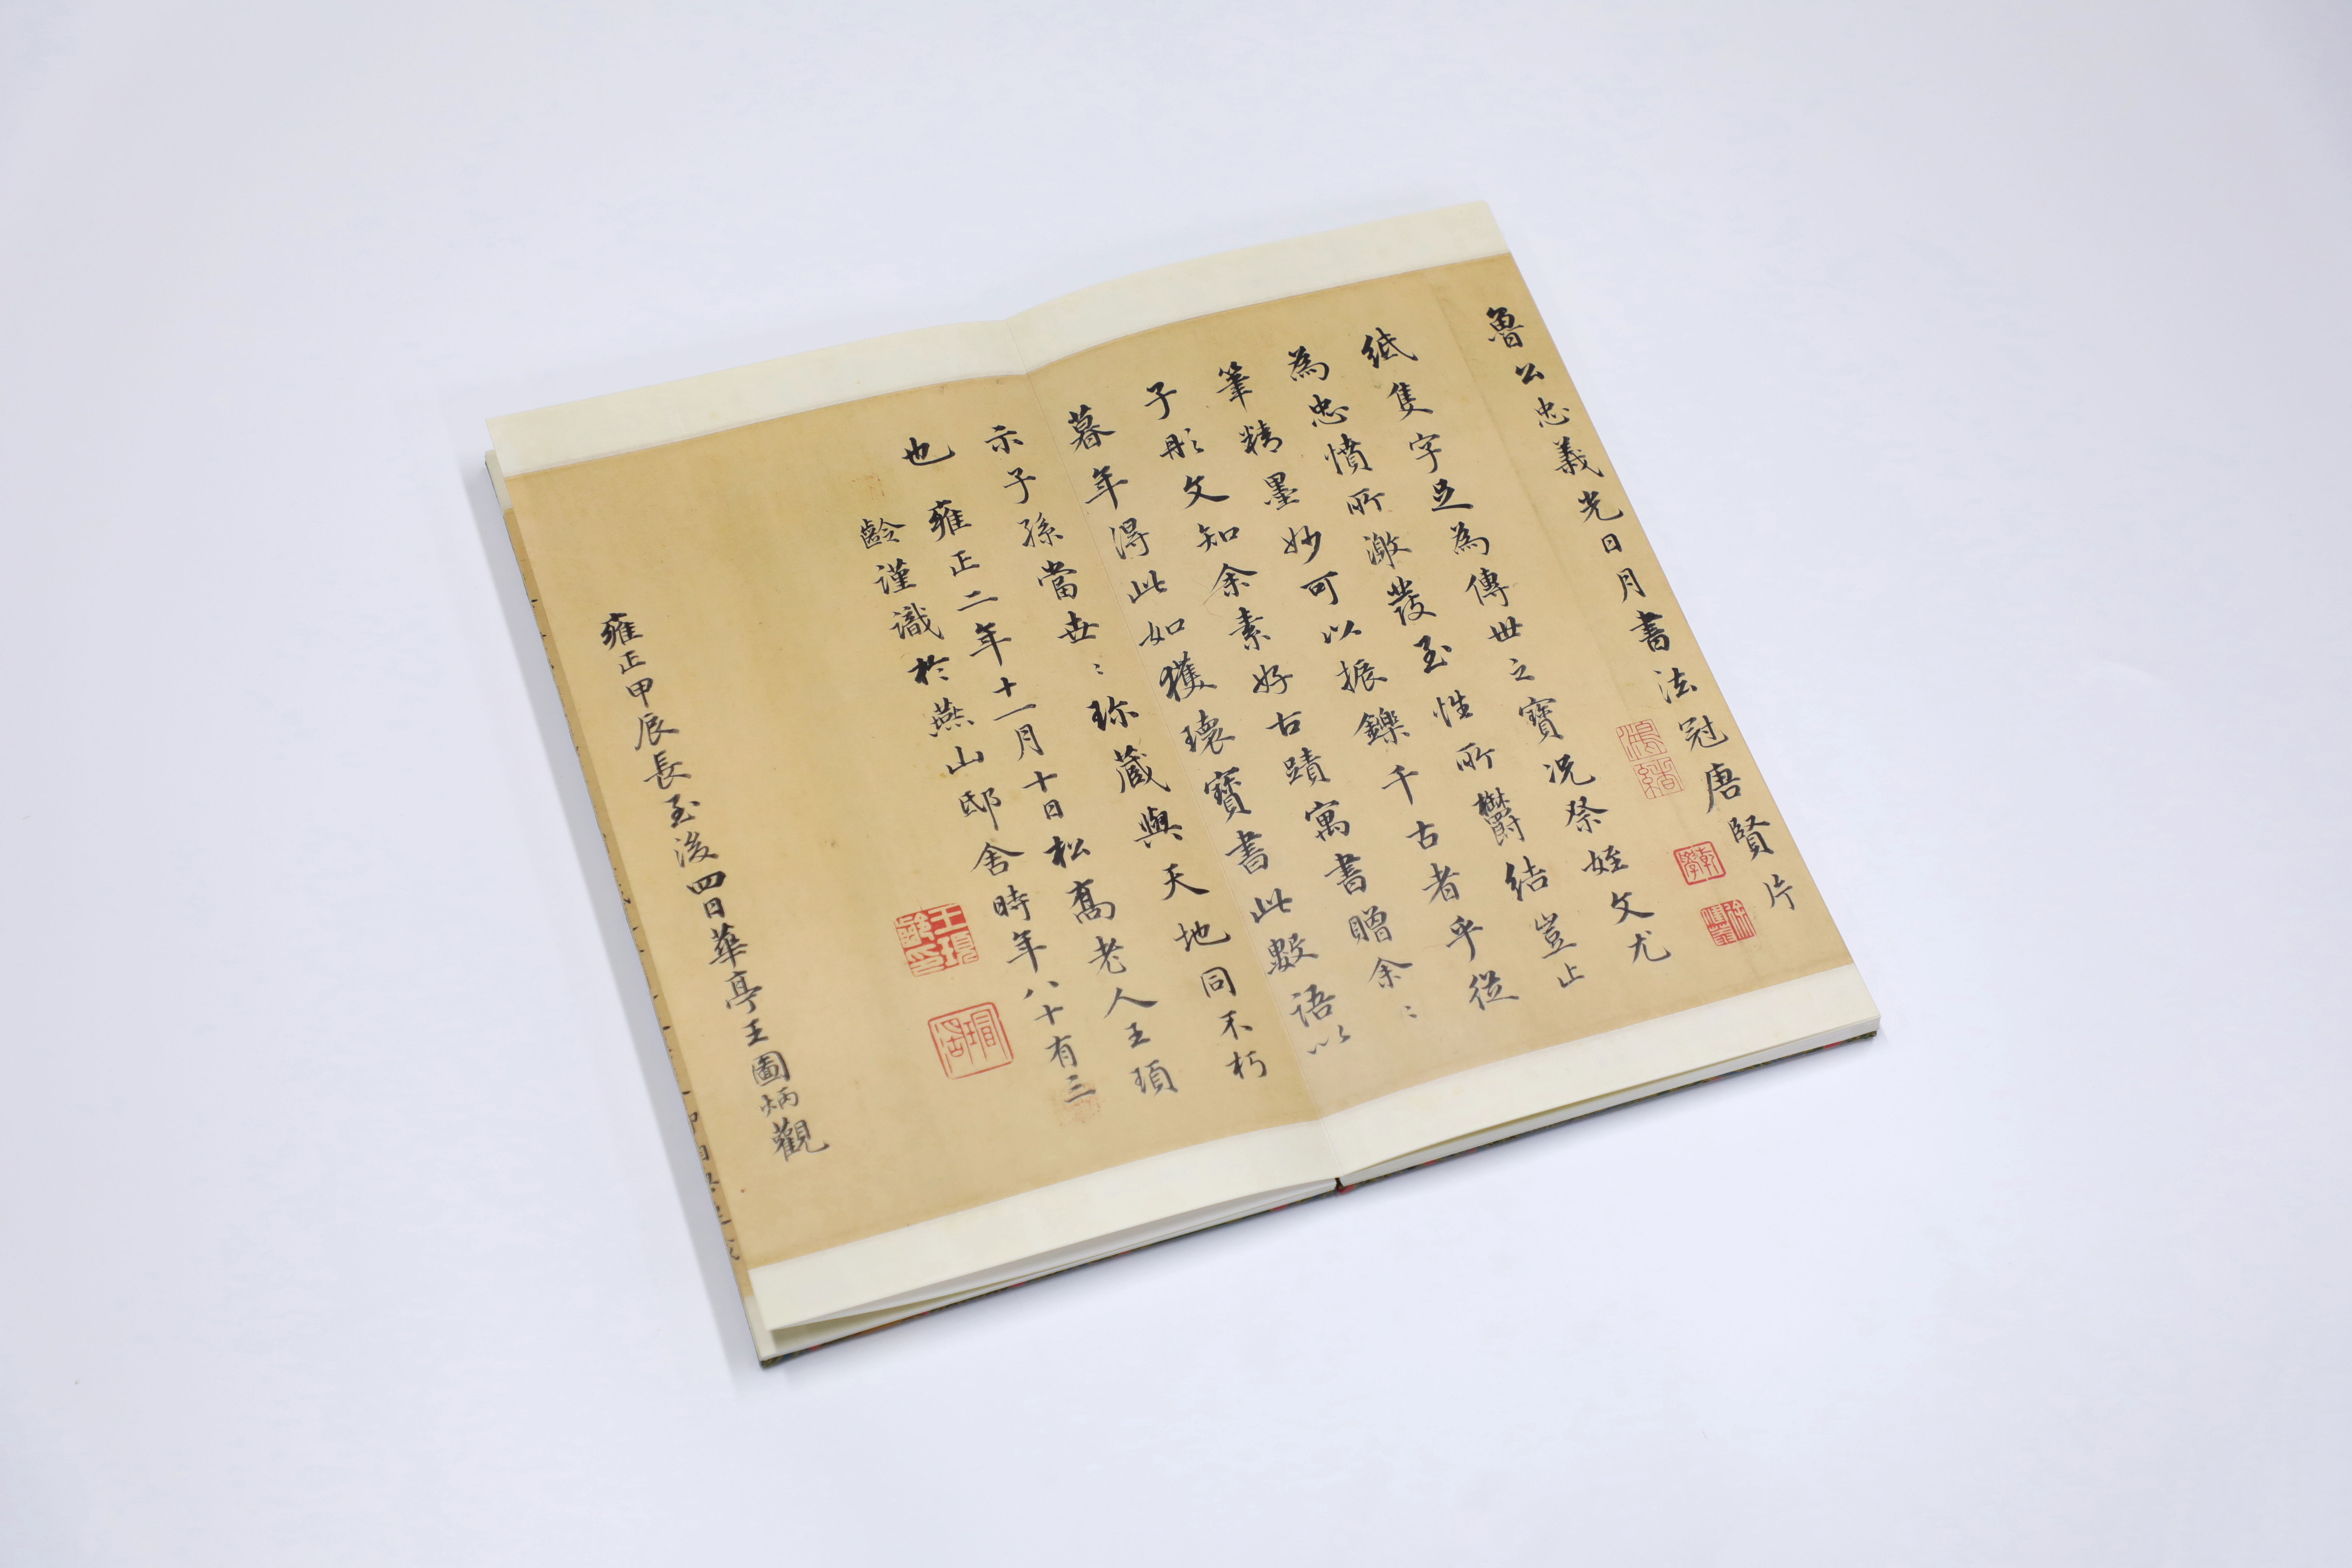 魯公忠義光日月書法冠唐賢片
紙隻字足為傳世之寶況祭姪文尤
為忠憤所激發至性所鬱結豈止
筆精墨妙可以振鑠千古者乎從
子彤文知余素好古蹟寓書贈余〻
暮年得此如獲瓌寶書此數語以
示子孫當世〻珎蔵與天地同不朽
也 雍正二年十一月十日松喬老人王頊
齡謹識於燕山邸舍時年八十有三
王頊齡印
雍正甲辰長至後四日華亭王圖炳觀